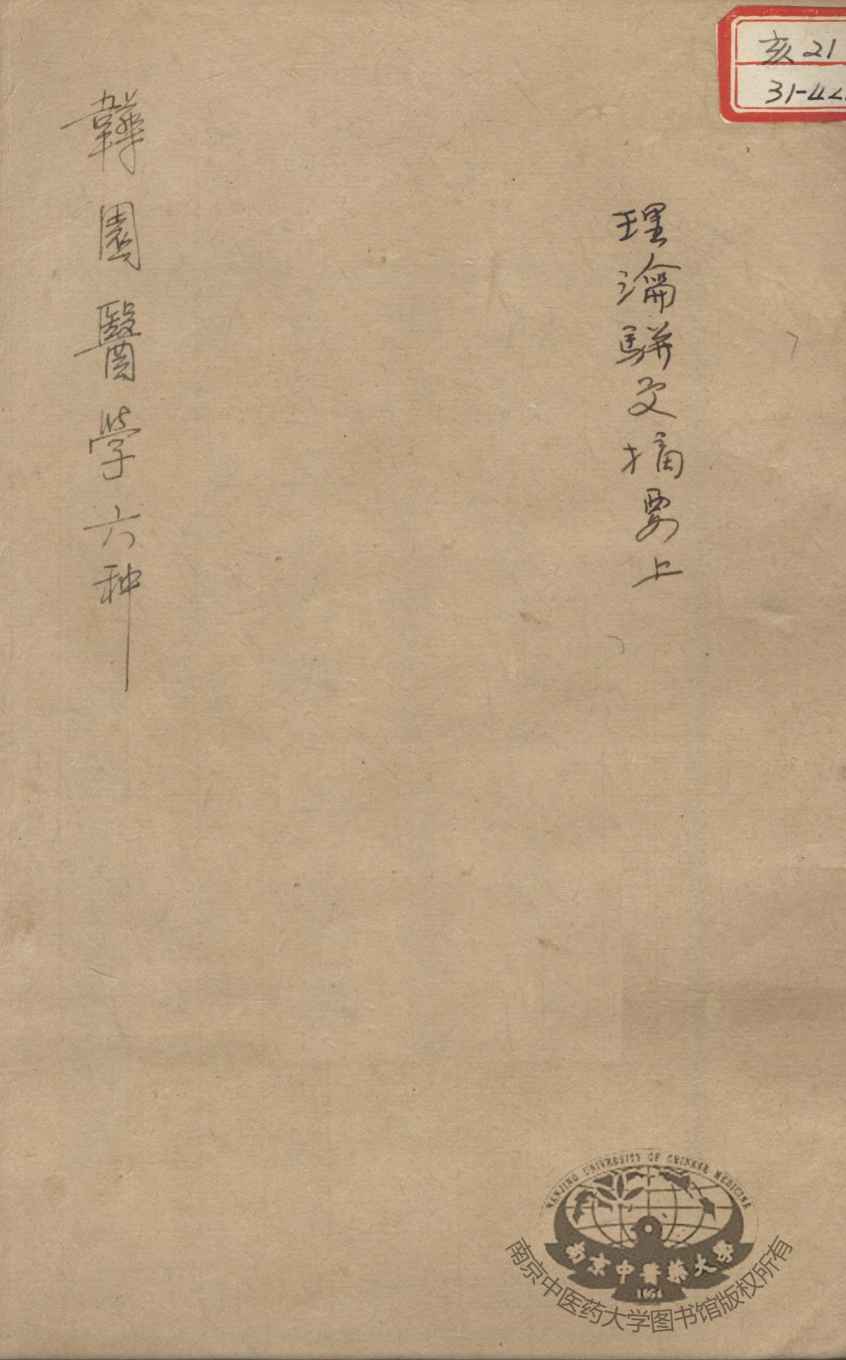 亥21
31-4
理瀹駢文摘要上
韡園醫学六种
NANJING UNIVERSITY OF CHINESE MEDICINE
南京中醫藥大學
1954
南京中医药大学图书馆版权所有